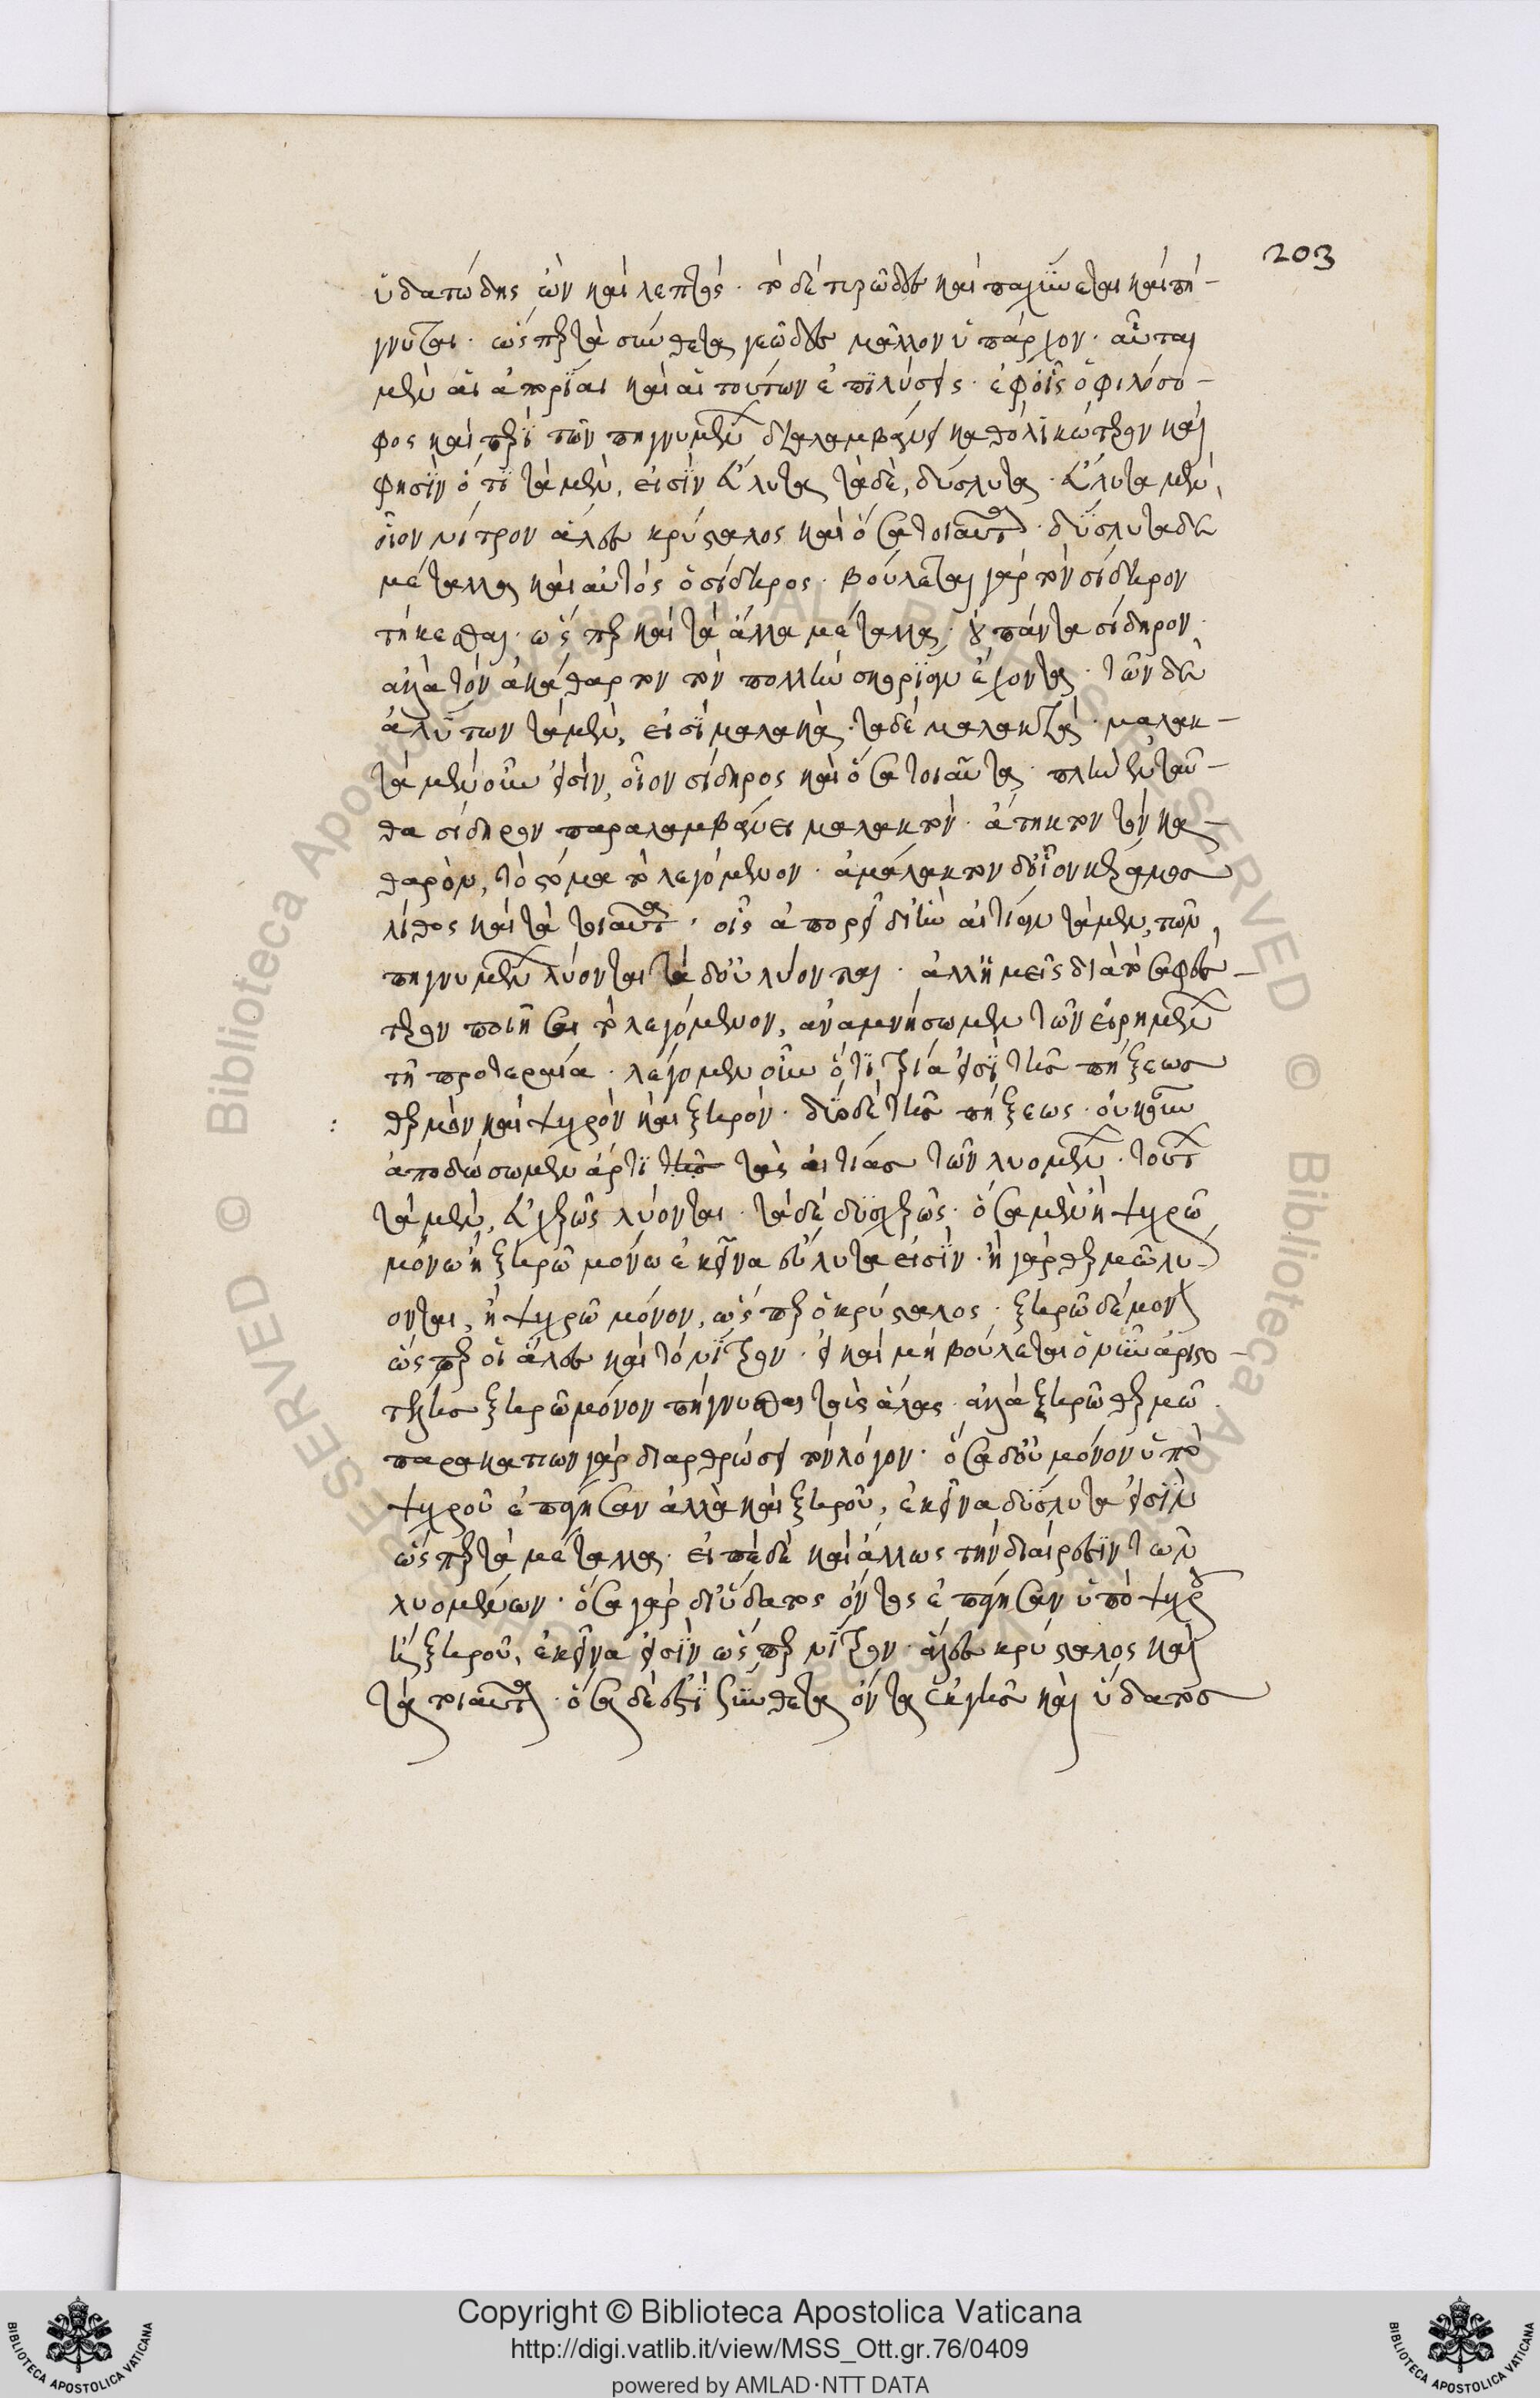 203
ὑδατώδης ὢν καὶ λεπτός. τὸ δὲ τυρῶδες καὶ παχύνεται καὶ πή-
γνυται. ὥσπερ τὰ σύνθετα γεῶδες μᾶλλον ὑπάρχον. αὗται
μὲν αἱ ἀπορίαι καὶ αἱ τούτων ἐπιλύσεις. ἐφ' οἷς ὁ φιλόσο-
φος καὶ περὶ τῶν πηγνυμένων διαλαμβάνει καθολικώτερον καὶ
φησὶν ὅτι τὰ μέν, εἰσὶν εὔλυτα τὰ δέ, δύσλυτα. εὔλυτα μέν,
οἷον νίτρον ἅλες κρύσταλος καὶ ὅσα τοιαῦτα. δύσλυτα δὲ
μέταλλα καὶ αὐτὸς ὁ σίδηρος. βούλεται γὰρ τὸν σίδηρον
τήκεσθαι. ὥσπερ καὶ τὰ ἄλλα μέταλλα. οὐ πάντα σίδηρον.
ἀλλὰ τὸν ἀκάθαρτον τὸν πολλὴν σκωρίαν ἔχοντα. τῶν δὲ
ἀλύτων τὰ μέν, εἰσὶ μαλακὰ. τὰ δὲ μαλακτά. μαλακ-
τὰ μὲν οὖν εἰσίν, οἷον σίδηρος καὶ ὅσα τοιαῦτα. πλὴν ἐνταῦ-
θα σίδηρον παραλαμβάνει μαλακτὸν. ἄτηκτον τὸν κα-
θαρὸν, τὸ στόμα τὸ λεγόμενον. ἀμάλακτον δ' οἷον κέραμος
λίθος καὶ τὰ τοιαῦτα. οἷς ἀπορεῖ δι' ἣν αἰτίαν τὰ μέν, τῶν
πηγνυμένων λύονται τὰ δ' οὐ λύονται. ἀλλ' ἡμεῖς διὰ τὸ σαφέσ-
τερον ποιῆσαι τὸ λεγόμενον, ἀναμνήσωμεν τῶν εἰρημένων
τῇ προτεραία. λέγομεν οὖν ὅτι τρία εἰσὶ τῆς πήξεως
θερμὸν καὶ ψυχρὸν καὶ ξηρόν. διὸ δὲ τῆς πήξεως. οὐκοῦν
ἀποδώσωμεν ἄρτι τῆς τὰς αἰτίας τῶν λυομένων. τούτων
τὰ μέν, εὐχερῶς λύονται. τὰ δὲ δυσχερῶς. ὅσα μὲν ἢ ψυχρῶ
μόνω ἢ ξηρῶ μόνω ἐκεῖνα εὔλυτα εἰσίν. ἢ γὰρ θερμῶ λύ-
ονται, ἢ ψυχρῶ μόνον, ὥσπερ ὁ κρύσταλος. ξηρῶ δὲ μόνον
ὥσπερ οἱ ἅλες καὶ τὸ νίτρον. εἰ καὶ μὴ βούλεται ὁ νῦν ἀριστο-
τέλης ξηρῶ μόνον πήγνυσθαι τοὺς ἅλας. ἀλλὰ ξηρῶ θερμῶ.
παρακατιὼν γὰρ διαρθρώσει τὸν λόγον. ὅσα δ' οὐ μόνον ὑπὸ
ψυχροῦ ἐπάγησαν ἀλλὰ καὶ ξηροῦ, ἐκεῖνα δύσλυτα εἰσὶν
ὥσπερ τὰ μέταλλα. εἶπε δὲ καὶ ἄλλως τὴν διαίρεσιν τῶν
λυομένων. ὅσα γὰρ δι' ὕδατος ὄντος ἐπάγησαν ὑπὸ ψυχροῦ
ἢ ξηροῦ, ἐκεῖνα εἰσὶν ὥσπερ νίτρον. ἅλες κρύσταλος καὶ
τὰ τοιαῦτα. ὅσα δὲ ἐστὶ σύνθετα ὄντα ἐκ γῆς καὶ ὕδατος
Copyright © Biblioteca Apostolica Vaticana
http://digi.vatlib.it/view/MSS_Ott.gr.76/0409
powered by AMLAD·NTT DATA